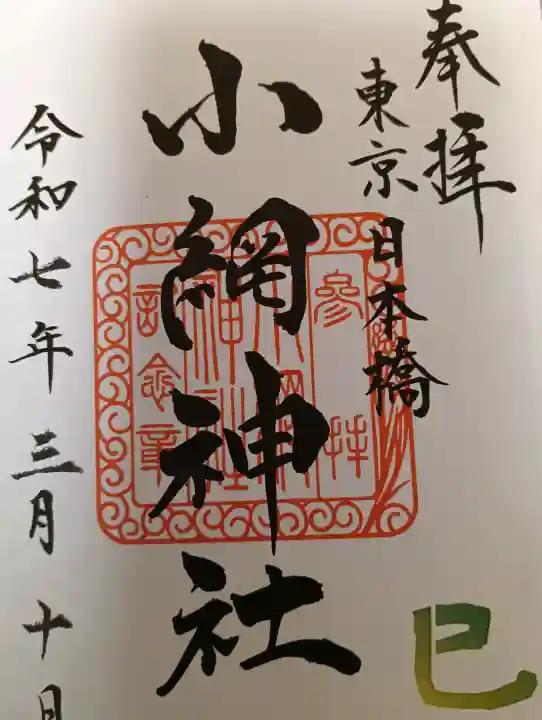 奉拝
東京 日本橋
小網神社
参拝
小網
神社
記念章
令和七年三月十日
巳